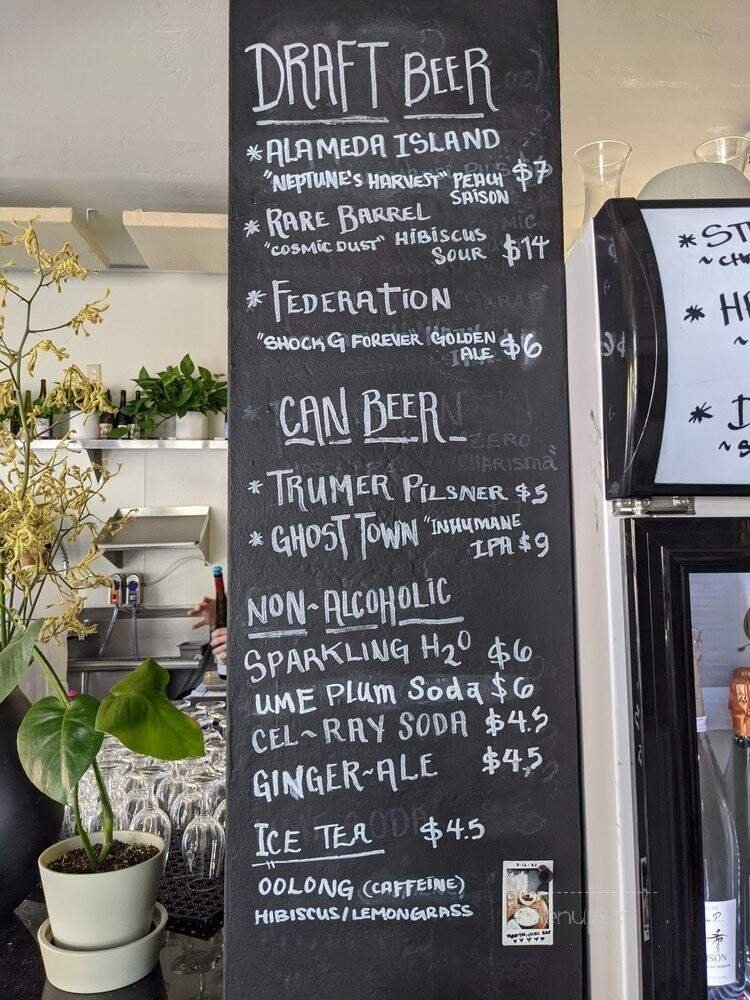 DRAFT BEER
* ALAMEDA ISLAND
"NEPTUNE'S HARVEST" PEACH $7
SAISON
* RARE BARREL
"COSMIC DUST" HIBISCUS
SOUR $14
* FEDERATION
"SHOCK G FOREVER GOLDEN
ALE $6
CAN BEER
* TRUMER PILSNER $5
* GHOST TOWN "INHUMANE
IPA $9
NON-ALCOHOLIC
SPARKLING H2O $6
UME PLUM SODA $6
CEL-RAY SODA $4.5
GINGER-ALE $4.5
ICE TEA $4.5
OOLONG (CAFFEINE)
HIBISCUS/LEMONGRASS
* ST
~ CH
* H
~
* D
~ S